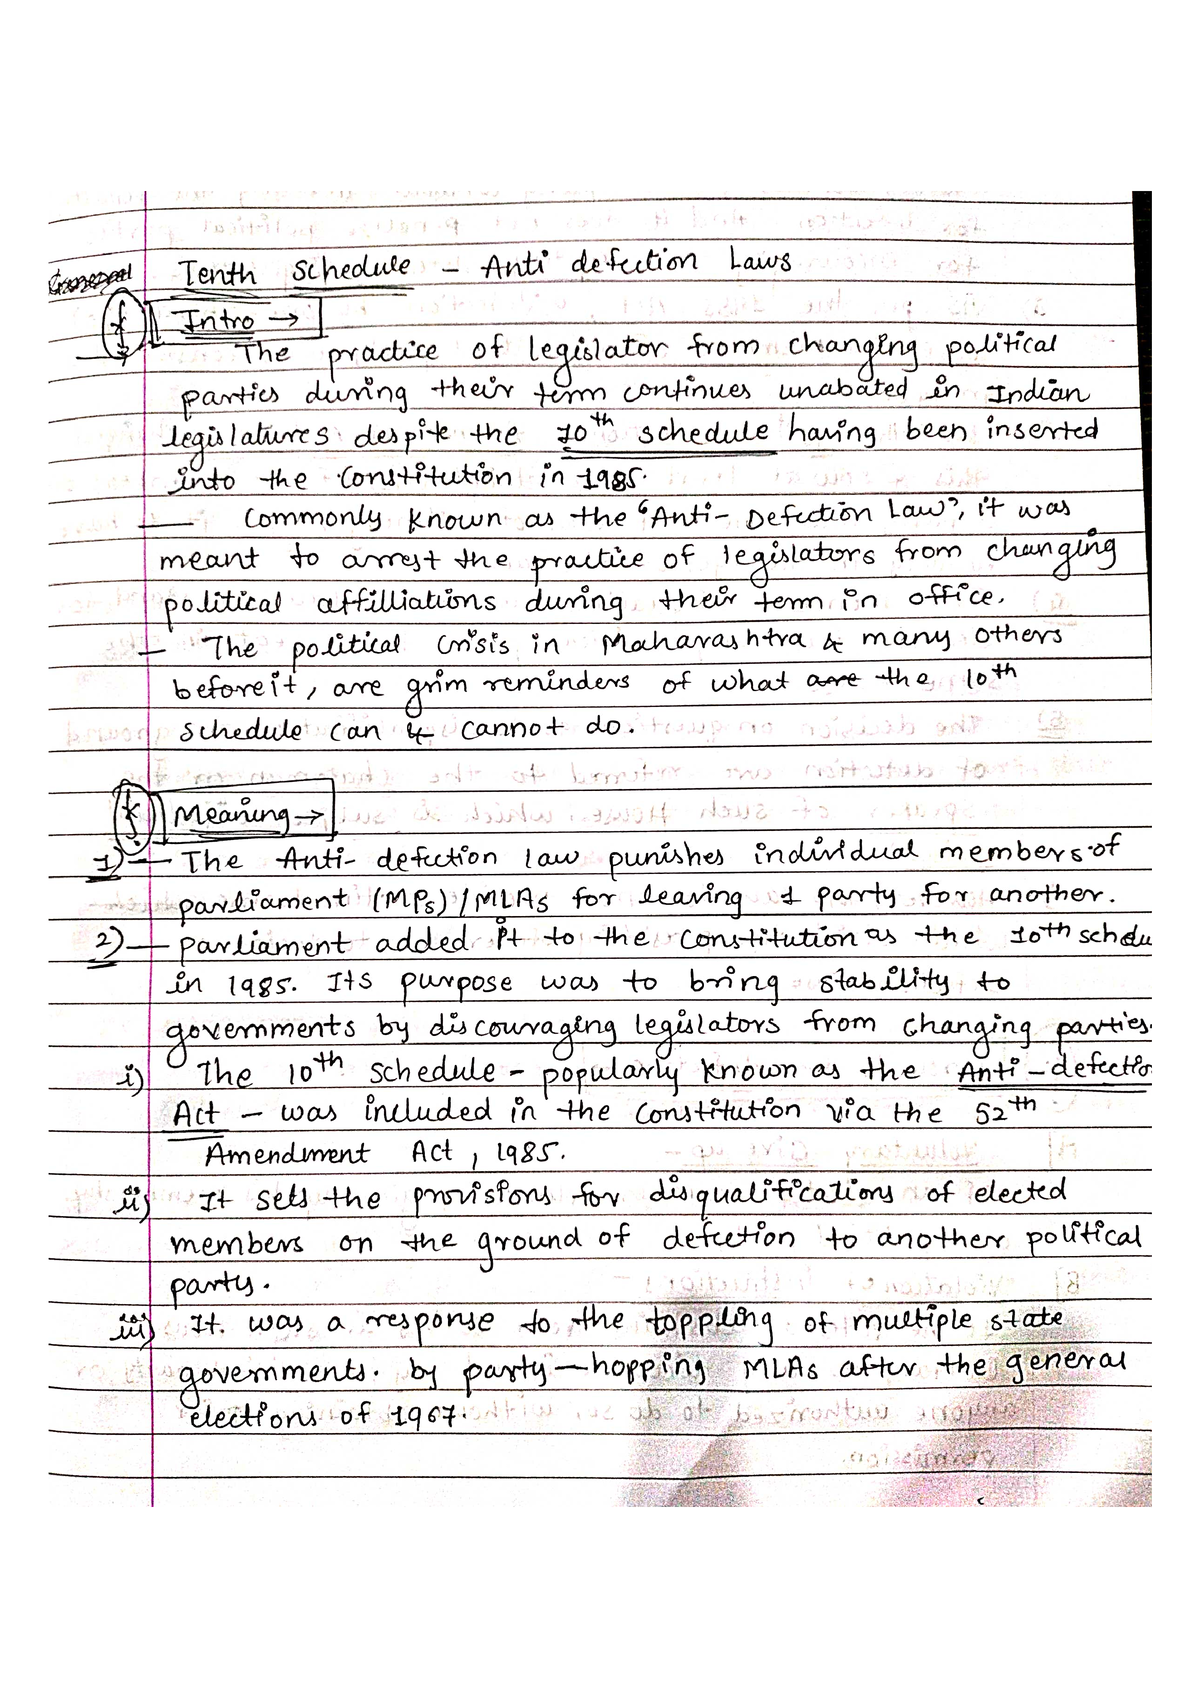 Tenth Schedule - Anti defection Laws
Intro →
The practice of legislator from changing political
parties during their term continues unabated in Indian
legislatures despite the 10th schedule having been inserted
into the Constitution in 1985.
— Commonly known as the "Anti-Defection Law", it was
meant to arrest the practice of legislators from changing
political affilliations during their term in office.
— The political crisis in Maharashtra & many others
before it, are grim reminders of what are the 10th
schedule can & cannot do.
Meaning →
1) — The Anti-defection law punishes individual members of
parliament (MPs)/MLAs for leaving 1 party for another.
2) — parliament added it to the constitution as the 10th schdu
in 1985. Its purpose was to bring stability to
governments by discouraging legislators from changing parties.
i) The 10th schedule - popularly known as the Anti-defectio
Act - was included in the constitution via the 52th
Amendment Act, 1985.
ii) It sets the provisions for disqualifications of elected
members on the ground of defection to another political
party.
iii) It was a response to the toppling of multiple state
governments. by party-hopping MLAs after the general
elections of 1967.